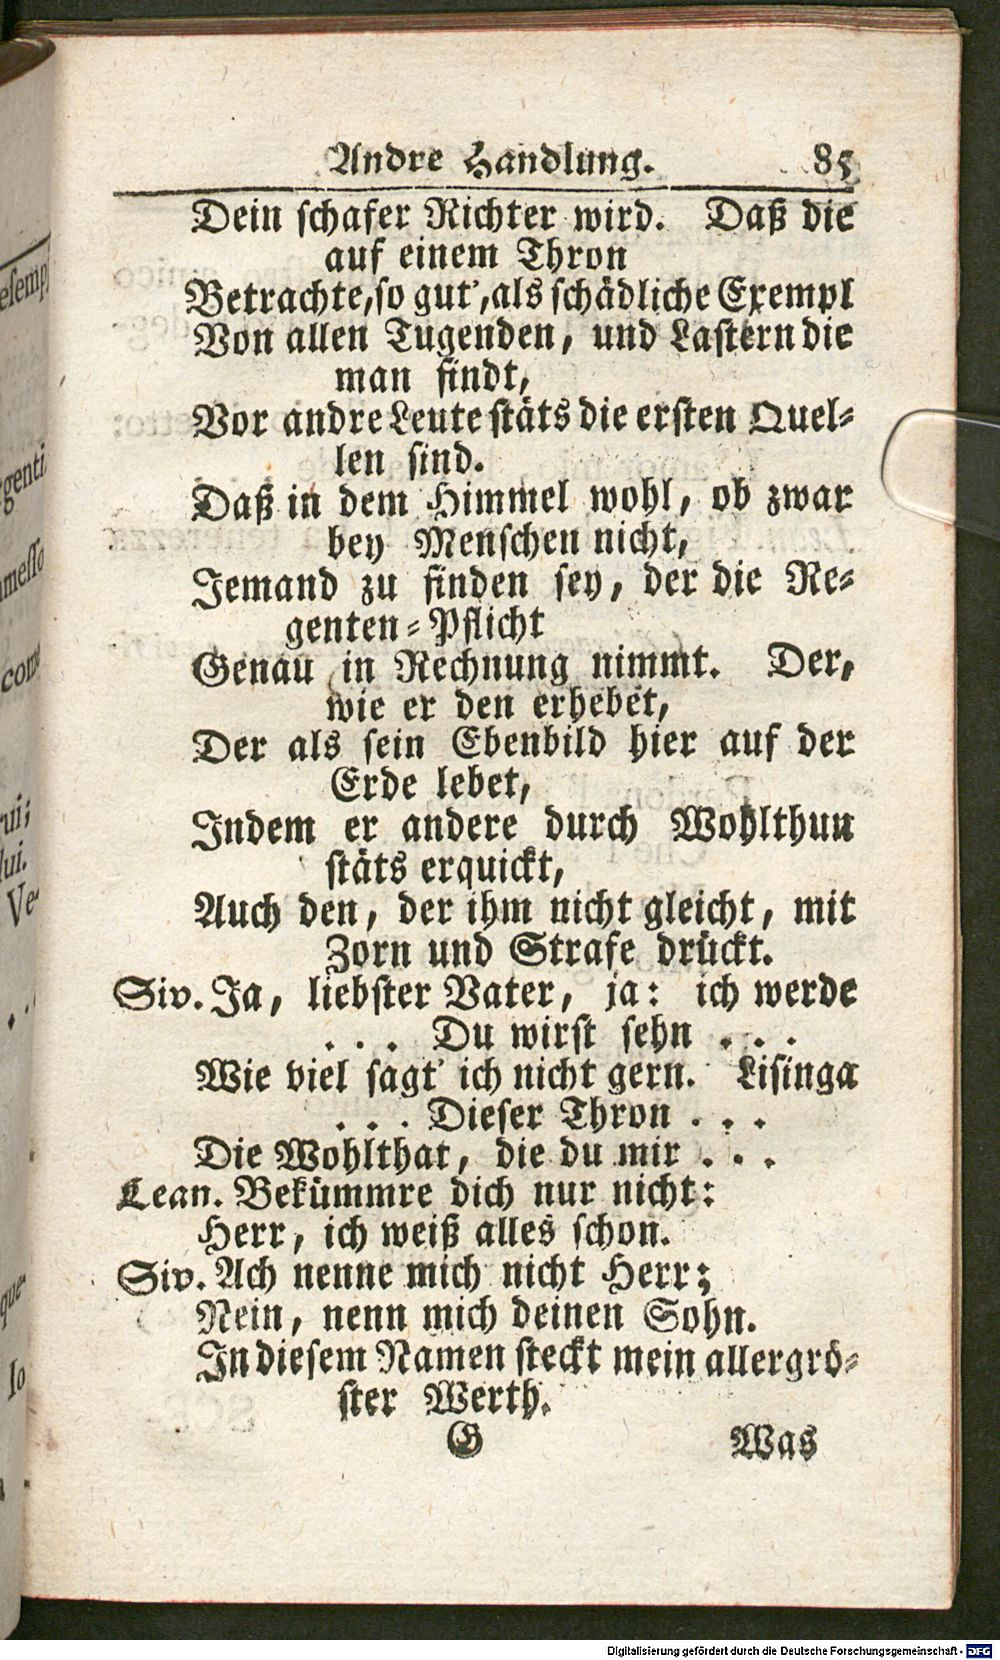 Andre Handlung. 85
Dein schafer Richter wird. Daß die
auf einem Thron
Betrachte, so gut', als schädliche Exempl
Von allen Tugenden, und Lastern die
man findt,
Vor andre Leute stäts die ersten Quel-
len sind.
Daß in dem Himmel wohl, ob zwar
bey Menschen nicht,
Jemand zu finden sey, der die Re-
genten-Pflicht
Genau in Rechnung nimmt. Der,
wie er den erhebet,
Der als sein Ebenbild hier auf der
Erde lebet,
Indem er andere durch Wohlthun
stäts erquickt,
Auch den, der ihm nicht gleicht, mit
Zorn und Strafe drückt.
Siv. Ja, liebster Vater, ja: ich werde
. . . Du wirst sehn . . .
Wie viel sagt' ich nicht gern. Lisinga
. . . Dieser Thron . . .
Die Wohlthat, die du mir . . .
Lean. Bekümmre dich nur nicht:
Herr, ich weiß alles schon.
Siv. Ach nenne mich nicht Herr;
Nein, nenn mich deinen Sohn.
In diesem Namen steckt mein allergrö-
ster Werth.
G Was
Digitalisierung gefördert durch die Deutsche Forschungsgemeinschaft - DFG